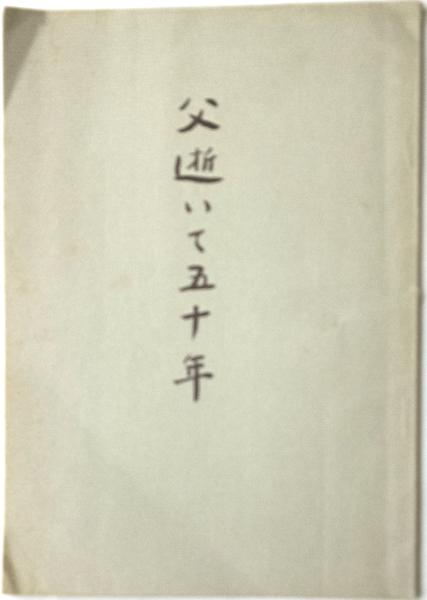 父逝いて五十年